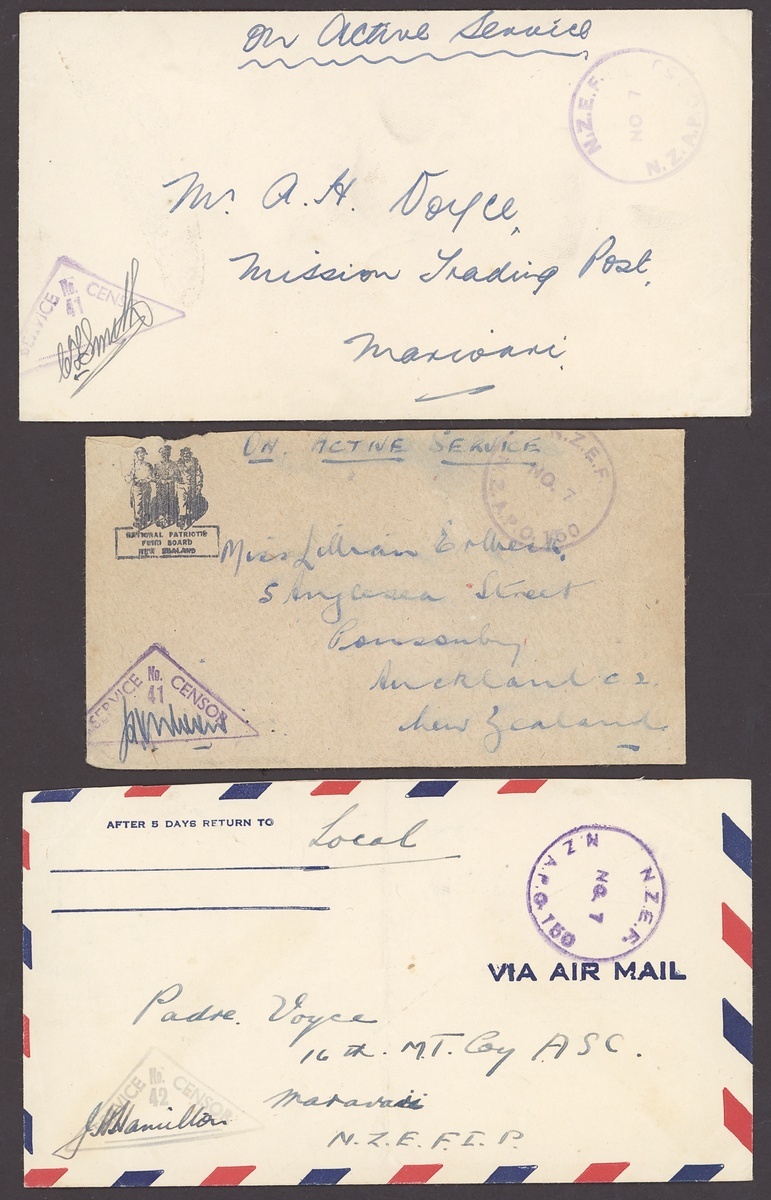 On Active Service
N.Z.E.F.
NO 7
N.Z.A.P.O
Mr. A. H. Voyce,
Mission Trading Post,
SERVICE No. 41 CENSOR
Smith
ON ACTIVE SERVICE
N.Z.E.F
NO. 7
N.Z.A.P.O. 150
NATIONAL PATRIOTIC
FUND BOARD
NEW ZEALAND
Miss Lillian
5 Anglesea Street
Ponsonby
Auckland C 2.
New Zealand
SERVICE No. 41 CENSOR
AFTER 5 DAYS RETURN TO
Local
N.Z.E.F.
NO. 7
N.Z.A.P.O. 150
VIA AIR MAIL
Padre. Voyce
16 th. M.T. Coy A.S.C.
N.Z.E.F.I.P.
SERVICE No. 42 CENSOR
J Hamilton